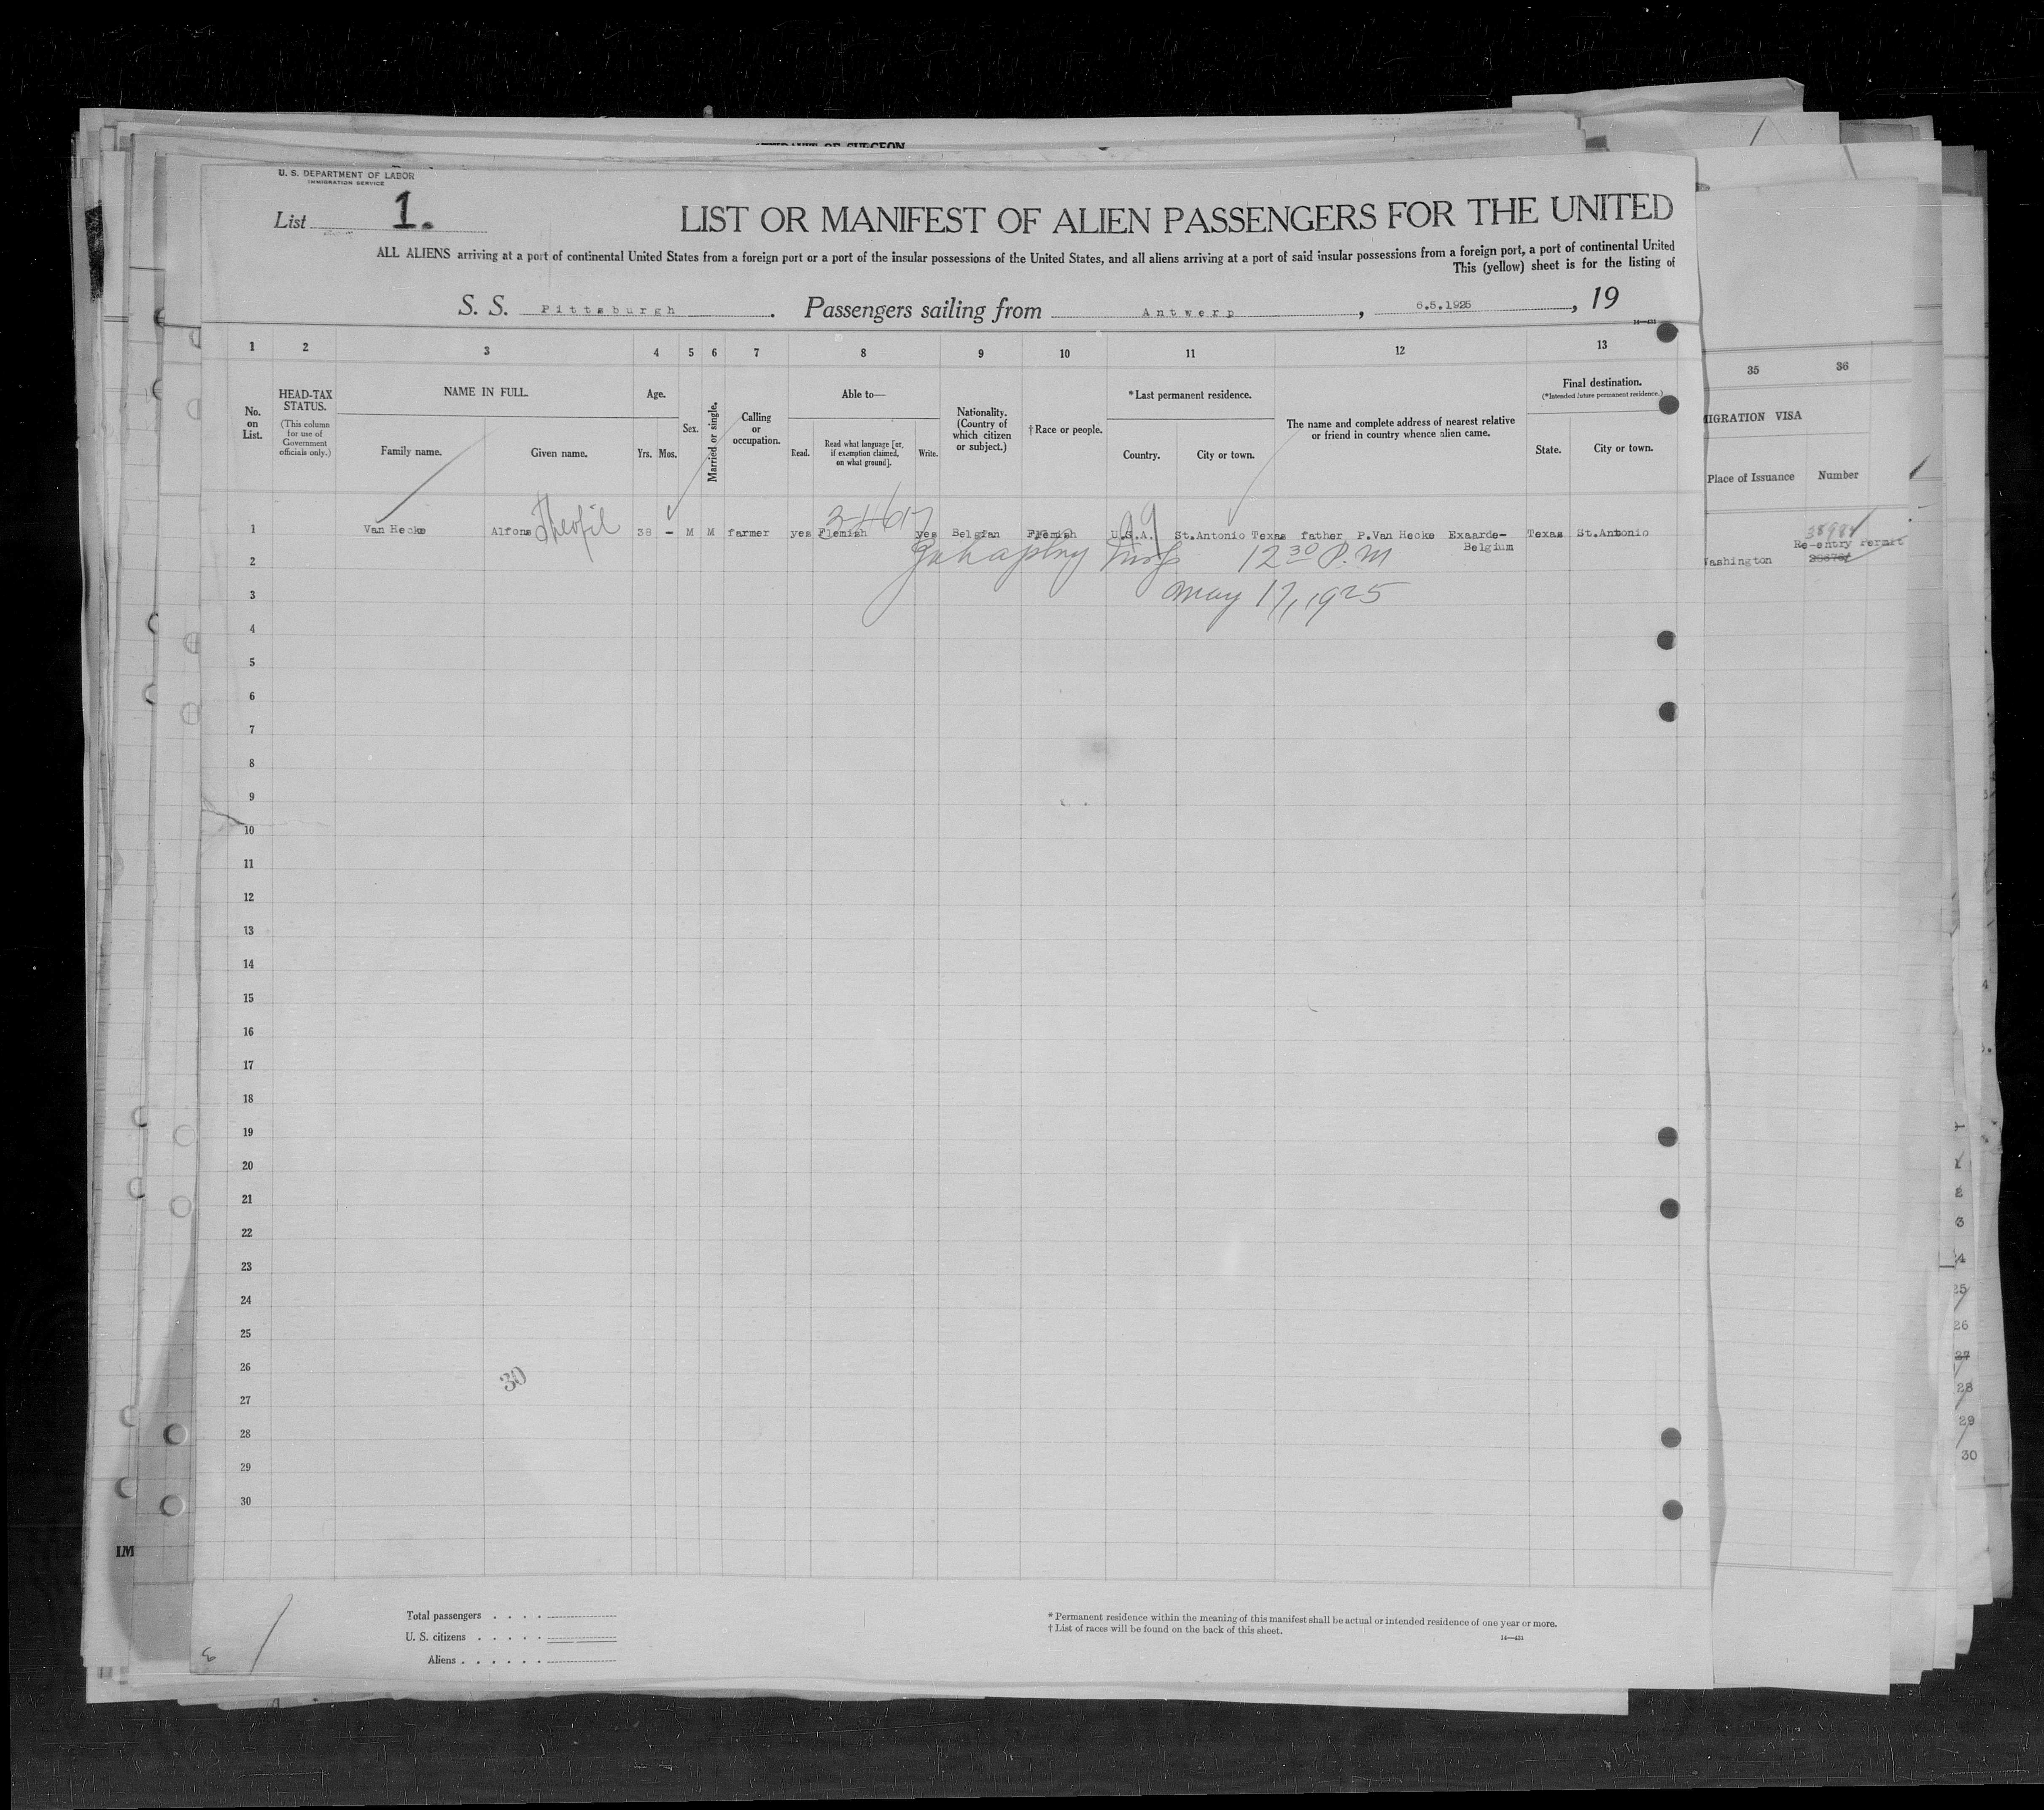 U. S. DEPARTMENT OF LABOR
IMMIGRATION SERVICE
List 1.
LIST OR MANIFEST OF ALIEN PASSENGERS FOR THE UNITED
ALL ALIENS arriving at a port of continental United States from a foreign port or a port of the insular possessions of the United States, and all aliens arriving at a port of said insular possessions from a foreign port, a port of continental United
This (yellow) sheet is for the listing of
S. S. Pittsburgh. Passengers sailing from Antwerp, 6.5.1925, 19
14—431
1 2 3 4 5 6 7 8 9 10 11 12 13 35 36
No. on List.
HEAD-TAX STATUS.
(This column for use of Government officials only.)
NAME IN FULL.
Family name.
Given name.
Age.
Yrs. Mos.
Sex.
Married or single.
Calling or occupation.
Able to—
Read.
Read what language [or, if exemption claimed, on what ground].
Write.
Nationality. (Country of which citizen or subject.)
†Race or people.
*Last permanent residence.
Country.
City or town.
The name and complete address of nearest relative or friend in country whence alien came.
Final destination.
(*Intended future permanent residence.)
State.
City or town.
MIGRATION VISA
Place of Issuance
Number
1 Van Hecke Alfons Theofil 38 – M M farmer yes Flemish yes Belgian Flemish U.S.A. St.Antonio Texas father P.Van Hecke Exaarde-Belgium Texas St.Antonio
Re-entry Permit
Washington
12 30 P.M
May 17, 1925
2
3
4
5
6
7
8
9
10
11
12
13
14
15
16
17
18
19
20
21
22
23
24
25
26
27
28
29
30
30
Total passengers
U. S. citizens
Aliens
* Permanent residence within the meaning of this manifest shall be actual or intended residence of one year or more.
† List of races will be found on the back of this sheet.
14—431
IM
25
26
27
28
29
30